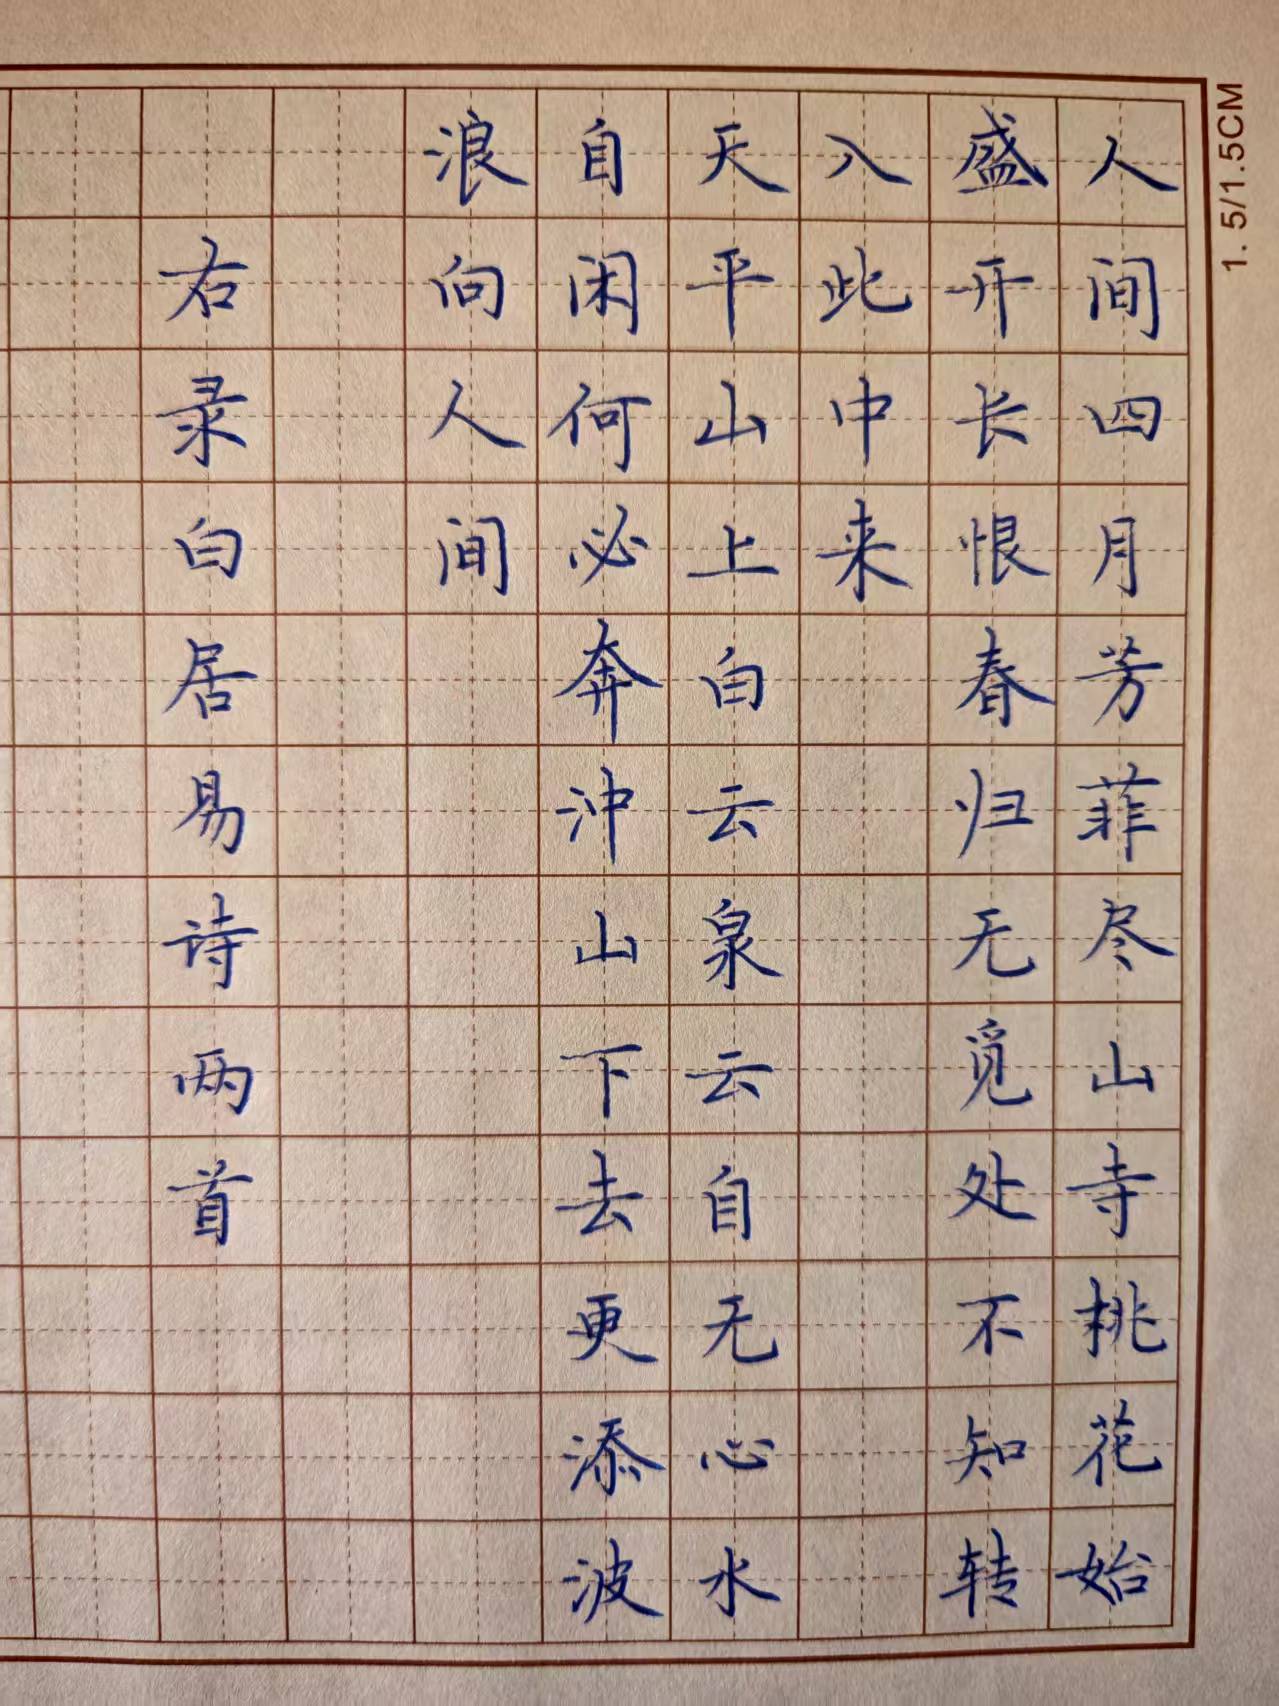 人间四月芳菲尽山寺桃花始
盛开长恨春归无觅处不知转
入此中来
天平山上白云泉云自无心水
自闲何必奔冲山下去更添波
浪向人间
右录白居易诗两首
1.5/1.5CM